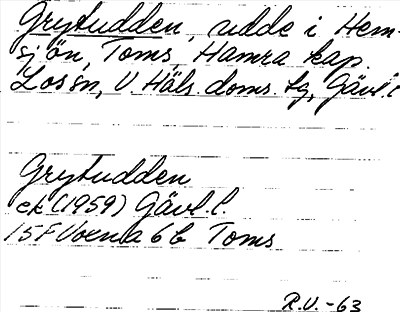 Grytudden, udde i Hem-
sjön, Toms, Hamra kap.
Lossn, V. Häls. doms. tg, Gävl. l
Grytudden
ek (1959) Gävl. l.
15F Voxna 6b Toms
R.V. -63